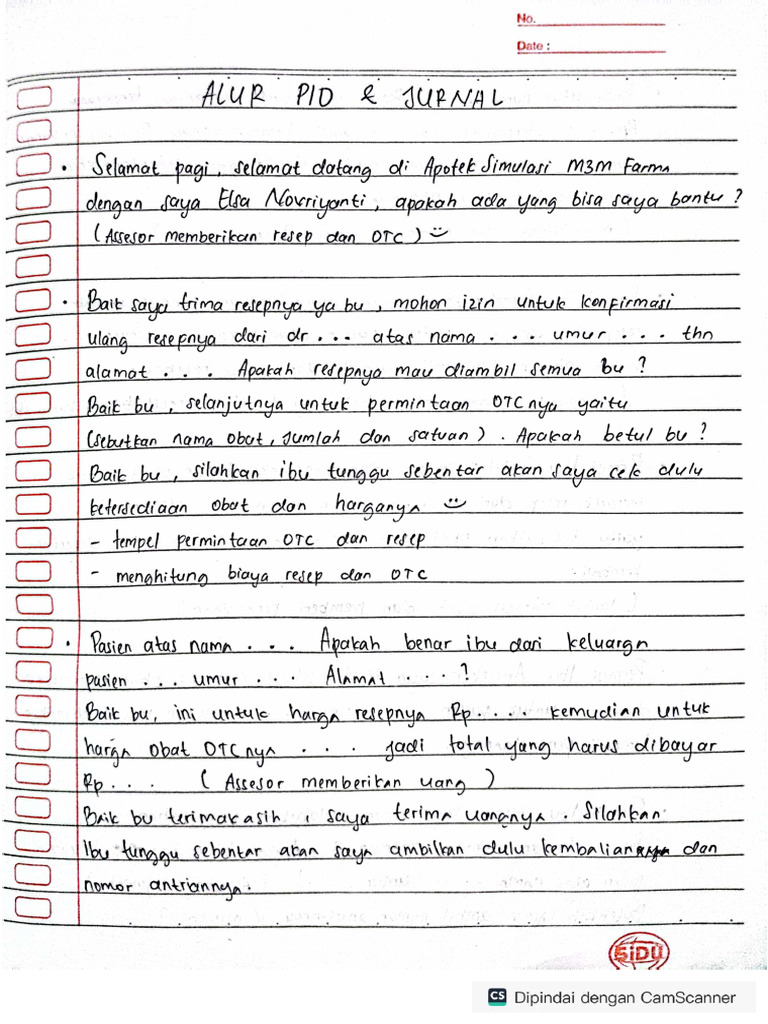 No.
Date :
ALUR PIO & JURNAL
. Selamat pagi, selamat datang di Apotek Simulasi M3M Farma
dengan saya Elsa Novriyanti, apakah ada yang bisa saya bantu ?
(Assesor memberikan resep dan OTC) ☺
. Baik saya trima resepnya ya bu, mohon izin untuk konfirmasi
ulang resepnya dari dr ... atas nama ... umur ... thn
alamat ... Apakah resepnya mau diambil semua bu ?
Baik bu, selanjutnya untuk permintaan OTCnya yaitu
(sebutkan nama obat, jumlah dan satuan). Apakah betul bu ?
Baik bu, silahkan ibu tunggu sebentar akan saya cek dulu
ketersediaan obat dan harganya ☺
- tempel permintaan OTC dan resep
- menghitung biaya resep dan OTC
. Pasien atas nama ... Apakah benar ibu dari keluarga
pasien ... umur ... Alamat ... ?
Baik bu, ini untuk harga resepnya Rp.... kemudian untuk
harga obat OTCnya .... jadi total yang harus dibayar
Rp.... (Assesor memberikan uang)
Baik bu terimakasih, saya terima uangnya. Silahkan
Ibu tunggu sebentar akan saya ambilkan dulu kembalian dan
nomor antriannya.
SiDU
CS Dipindai dengan CamScanner